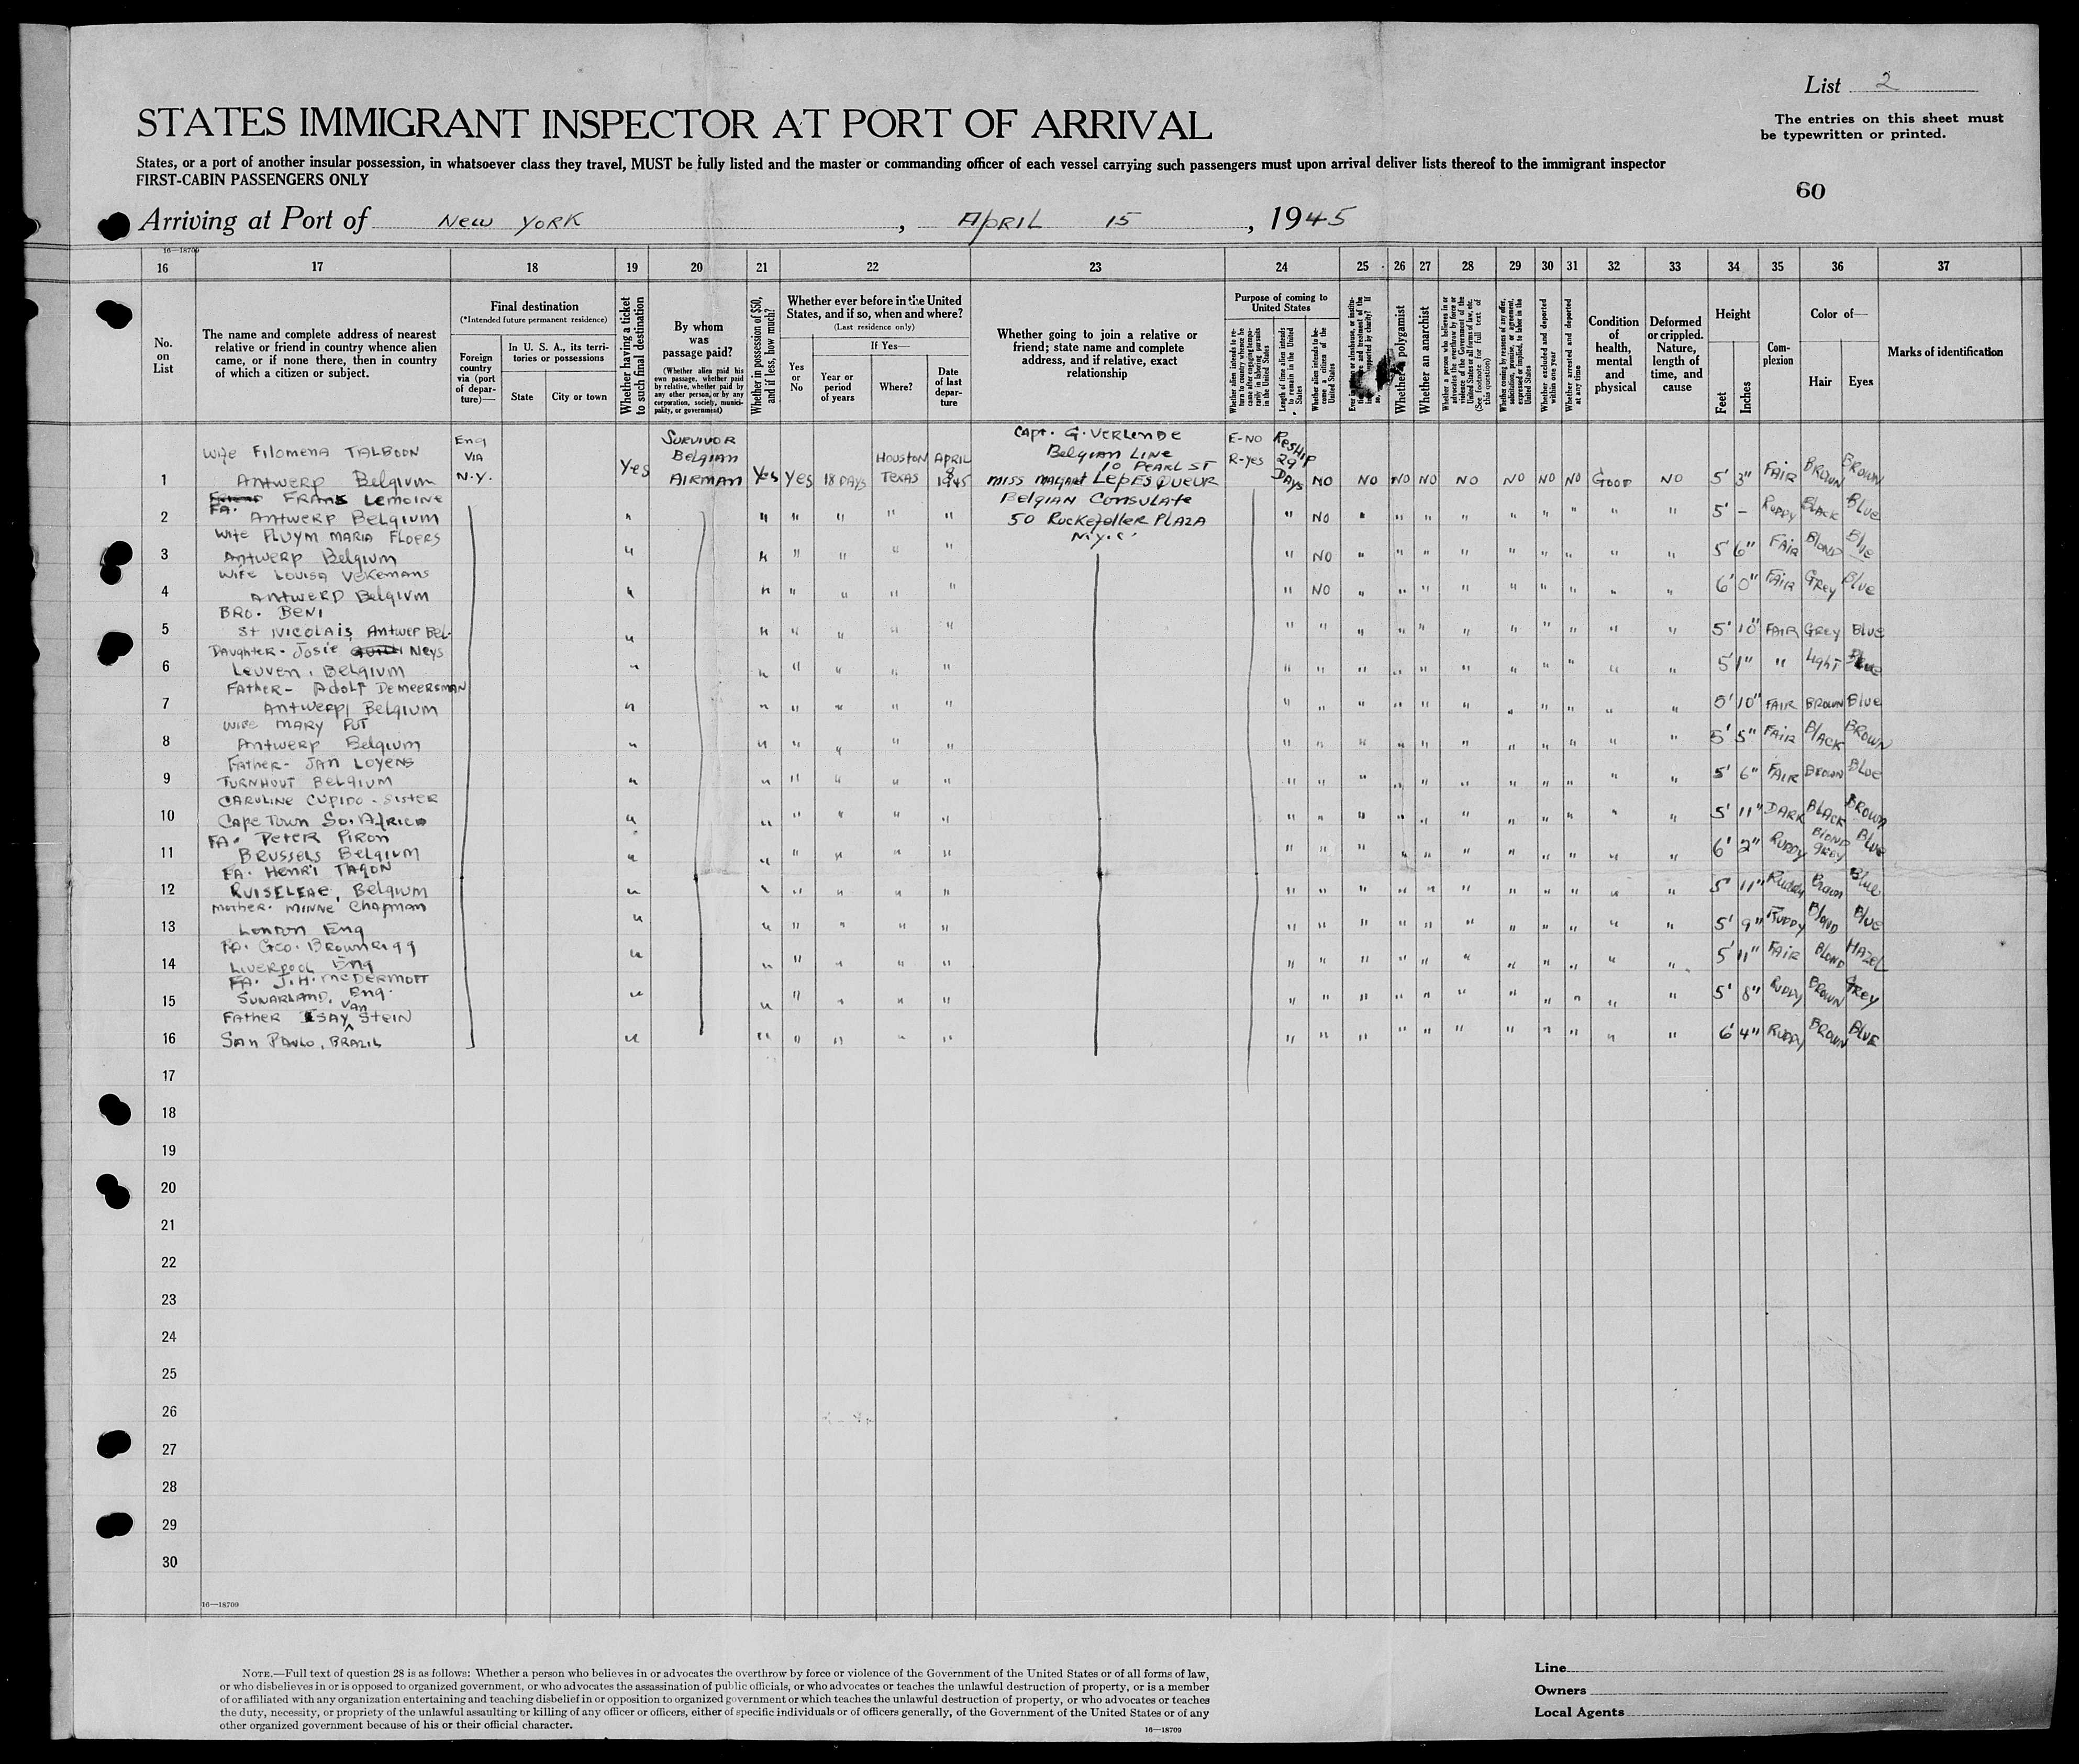 List 2
STATES IMMIGRANT INSPECTOR AT PORT OF ARRIVAL
The entries on this sheet must
be typewritten or printed.
States, or a port of another insular possession, in whatsoever class they travel, MUST be fully listed and the master or commanding officer of each vessel carrying such passengers must upon arrival deliver lists thereof to the immigrant inspector
FIRST-CABIN PASSENGERS ONLY
60
Arriving at Port of New York, April 15, 1945
16—18709
16 17 18 19 20 21 22 23 24 25 26 27 28 29 30 31 32 33 34 35 36 37
No. on List
The name and complete address of nearest
relative or friend in country whence alien
came, or if none there, then in country
of which a citizen or subject.
Final destination
(*Intended future permanent residence)
Foreign country via (port of departure)—
In U. S. A., its territories or possessions
State
City or town
Whether having a ticket to such final destination
By whom was passage paid?
(Whether alien paid his own passage, whether paid by relative, whether paid by any other person, or by any corporation, society, municipality, or government)
Whether in possession of $50, and if less, how much?
Whether ever before in the United States, and if so, when and where?
(Last residence only)
If Yes—
Yes or No
Year or period of years
Where?
Date of last departure
Whether going to join a relative or
friend; state name and complete
address, and if relative, exact
relationship
Purpose of coming to United States
Whether alien intends to return to country whence he came after engaging temporarily in laboring pursuits in the United States
Length of time alien intends to remain in the United States
Whether alien intends to become a citizen of the United States
Whether a polygamist
Whether an anarchist
Whether a person who believes in or advocates the overthrow by force or violence of the Government of the United States or all forms of law, etc. (See footnote for full text of this question)
Whether coming by reason of any offer, solicitation, promise, or agreement, expressed or implied, to labor in the United States
Whether excluded and deported within one year
Whether arrested and deported at any time
Condition of health, mental and physical
Deformed or crippled. Nature, length of time, and cause
Height
Feet
Inches
Complexion
Color of—
Hair
Eyes
Marks of identification
Wife Filomena TALBOON
1 Antwerp Belgium Eng VIA N.Y. Yes SURVIVOR BELGIAN AIRMAN Yes Yes 18 DAYS HOUSTON TEXAS APRIL 8 1945 Capt. G. VERLENDE Belgian Line 10 PEARL ST E-NO R-yes Reship 29 Days NO NO NO NO NO NO NO NO GOOD NO 5' 3" FAIR BROWN BROWN
MISS Margaret LEPESQUEUR
FA. FRANS Lemoine
2 Antwerp Belgium " " " " " " Belgian Consulate 50 Rockefeller PLAZA N.Y.C. " NO " " " " " " " " " 5' - RUDDY BLACK BLUE
Wife PLUYM MARIA FLOERS
3 Antwerp Belgium " " " " " " " NO " " " " " " " " " 5' 6" FAIR BLOND Blue
Wife LOUISA VEKEMANS
4 Antwerp Belgium " " " " " " " NO " " " " " " " " " 6' 0" FAIR GREY Blue
BRO. BENI
5 St NICOLAIS Antwerp Bel. " " " " " " " " " " " " " " " " " 5' 10" FAIR GREY BLUE
Daughter - Josie Neys
6 Leuven, Belgium " " " " " " " " " " " " " " " " " 5' 1" " Light Blue
Father - Adolf Demeersman
7 Antwerp, Belgium " " " " " " " " " " " " " " " " " 5' 10" FAIR BROWN Blue
Wife MARY PUT
8 Antwerp Belgium " " " " " " " " " " " " " " " " " 5' 5" FAIR BLACK BROWN
Father - JAN LOYENS
9 TURNHOUT BELGIUM " " " " " " " " " " " " " " " " " 5' 6" FAIR BROWN BLUE
CAROLINE CUPIDO - SISTER
10 Cape Town So. Africa " " " " " " " " " " " " " " " " " 5' 11" DARK BLACK BROWN
FA. PETER PIRON
11 BRUSSELS Belgium " " " " " " " " " " " " " " " " " 6' 2" RUDDY BLOND GREY BLUE
FA. HENRI TAGON
12 RUISELEAE, Belgium " " " " " " " " " " " " " " " " " 5' 11" Ruddy Brown Blue
Mother. MINNE Chapman
13 London Eng " " " " " " " " " " " " " " " " " 5' 9" RUDDY BLOND Blue
FA. Geo. Brownrigg
14 LIVERPOOL Eng " " " " " " " " " " " " " " " " " 5' 11" FAIR BLOND HAZEL
FA. J.H. McDERMOTT
15 SUNARLAND, Eng. " " " " " " " " " " " " " " " " " 5' 8" RUDDY BROWN GREY
FATHER ISAY van STEIN
16 San PAULO, BRAZIL " " " " " " " " " " " " " " " " " 6' 4" RUDDY BROWN BLUE
17
18
19
20
21
22
23
24
25
26
27
28
29
30
16—18709
NOTE.—Full text of question 28 is as follows: Whether a person who believes in or advocates the overthrow by force or violence of the Government of the United States or of all forms of law,
or who disbelieves in or is opposed to organized government, or who advocates the assassination of public officials, or who advocates or teaches the unlawful destruction of property, or is a member
of or affiliated with any organization entertaining and teaching disbelief in or opposition to organized government or which teaches the unlawful destruction of property, or who advocates or teaches
the duty, necessity, or propriety of the unlawful assaulting or killing of any officer or officers, either of specific individuals or of officers generally, of the Government of the United States or of any
other organized government because of his or their official character.
16—18709
Line
Owners
Local Agents